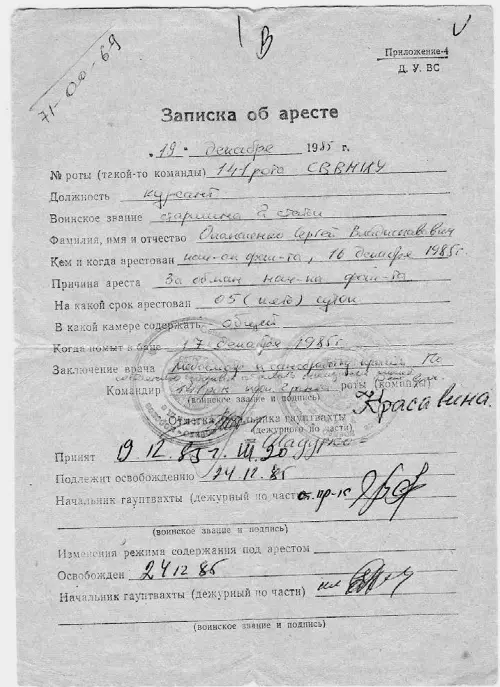 71-00-69
В
Приложение-4
Д. У. ВС
Записка об аресте
"19" декабря 1985 г.
№ роты (такой-то команды) 141 рота СВВМИУ
Должность курсант
Воинское звание старшина 2 статьи
Фамилия, имя и отчество Сергей Владиславович
Кем и когда арестован нач-ом фак-та, 16 декабря 1985г
Причина ареста За обман нач-ка фак-та
На какой срок арестован 05 (пять) суток
В какой камере содержать общей
Когда помыт в бане 17 декабря 1985г
Заключение врача
Командир роты (команды)
(воинское звание и подпись)
Красавина.
Отметка начальника гауптвахты
(дежурного по части)
Принят 19.12.85г.
Подлежит освобождению 24.12.85
Начальник гауптвахты (дежурный по части)
(воинское звание и подпись)
Изменения режима содержания под арестом
Освобожден 24 12 85
Начальник гауптвахты (дежурный по части)
(воинское звание и подпись)